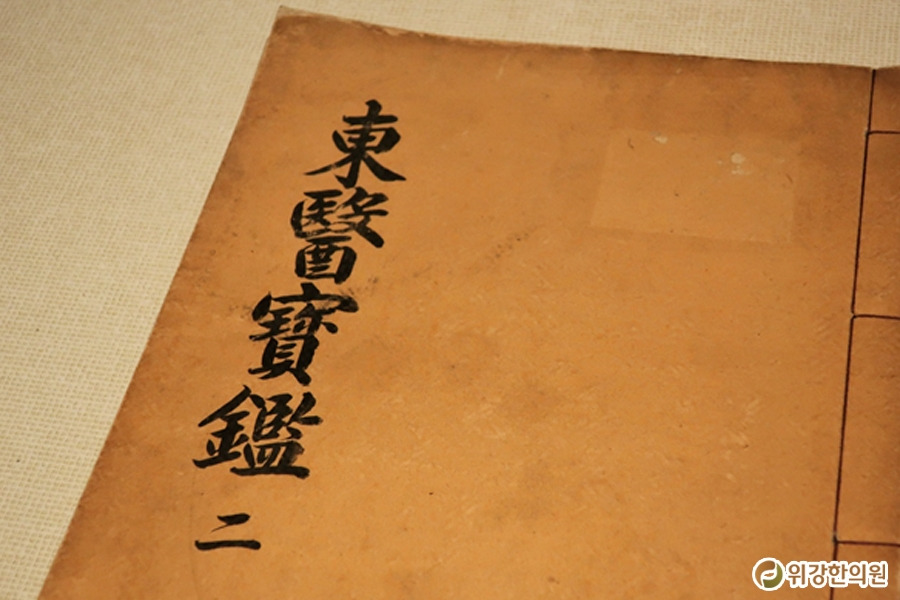 東醫寶鑑 二
위강한의원